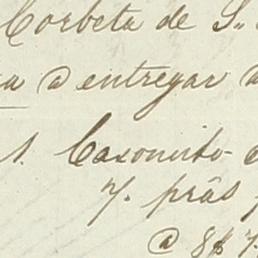 Corbeta de S.
a a entregar a
1. Caxonsito
7. prãs
@ 8$ 7